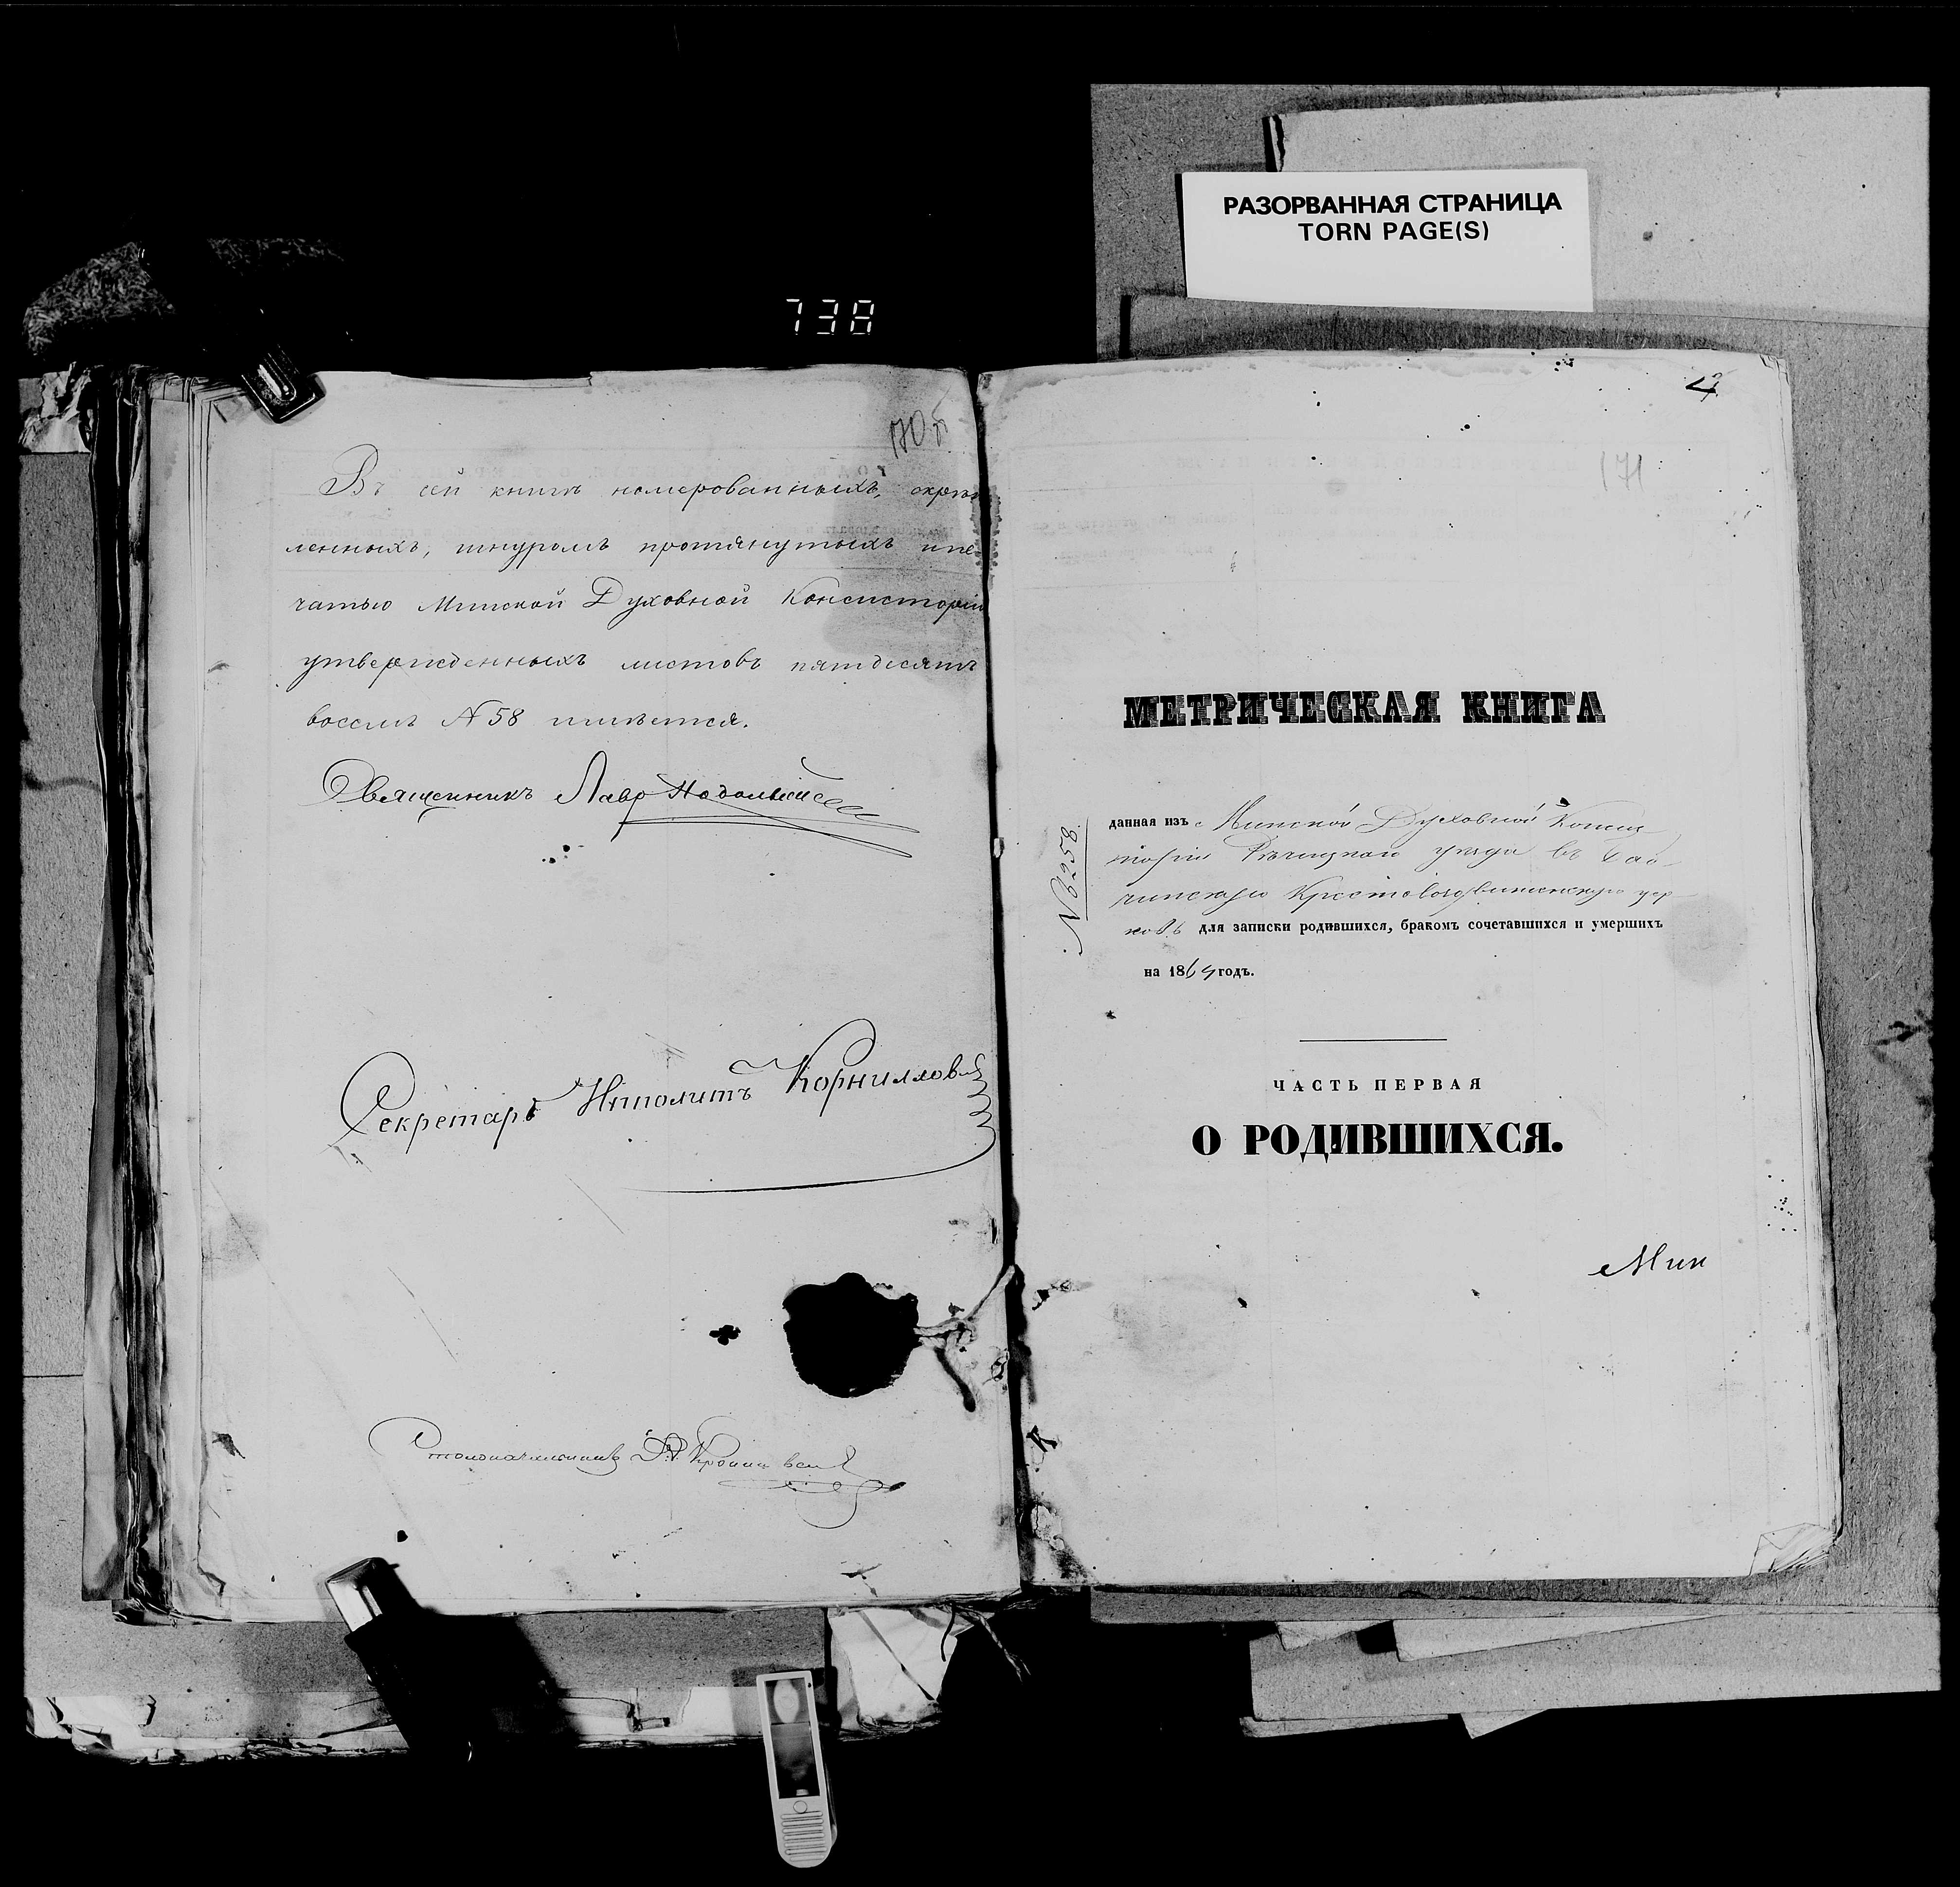 РАЗОРВАННАЯ СТРАНИЦА
TORN PAGE(S)
738
170
Въ сей книгѣ номерованныхъ, скрѣп
ленныхъ, шнуромъ протянутыхъ и пе
чатью Минской Духовной Консисторіи
утвержденныхъ листовъ пятдесятъ
восемь №58 имѣется.
Священникъ Лавр
Секретарь Ипполитъ Корниллов
Столоначальникъ
171
МЕТРИЧЕСКАЯ КНИГА
№ 8258
данная изъ Минской Духовной Консис
торіи Рѣчицкаго уѣзда въ
Крестовоздвиженскую цер
ковь для записки родившихся, бракомъ сочетавшихся и умершихъ
на 1864 годъ.
ЧАСТЬ ПЕРВАЯ
О РОДИВШИХСЯ.
Мин